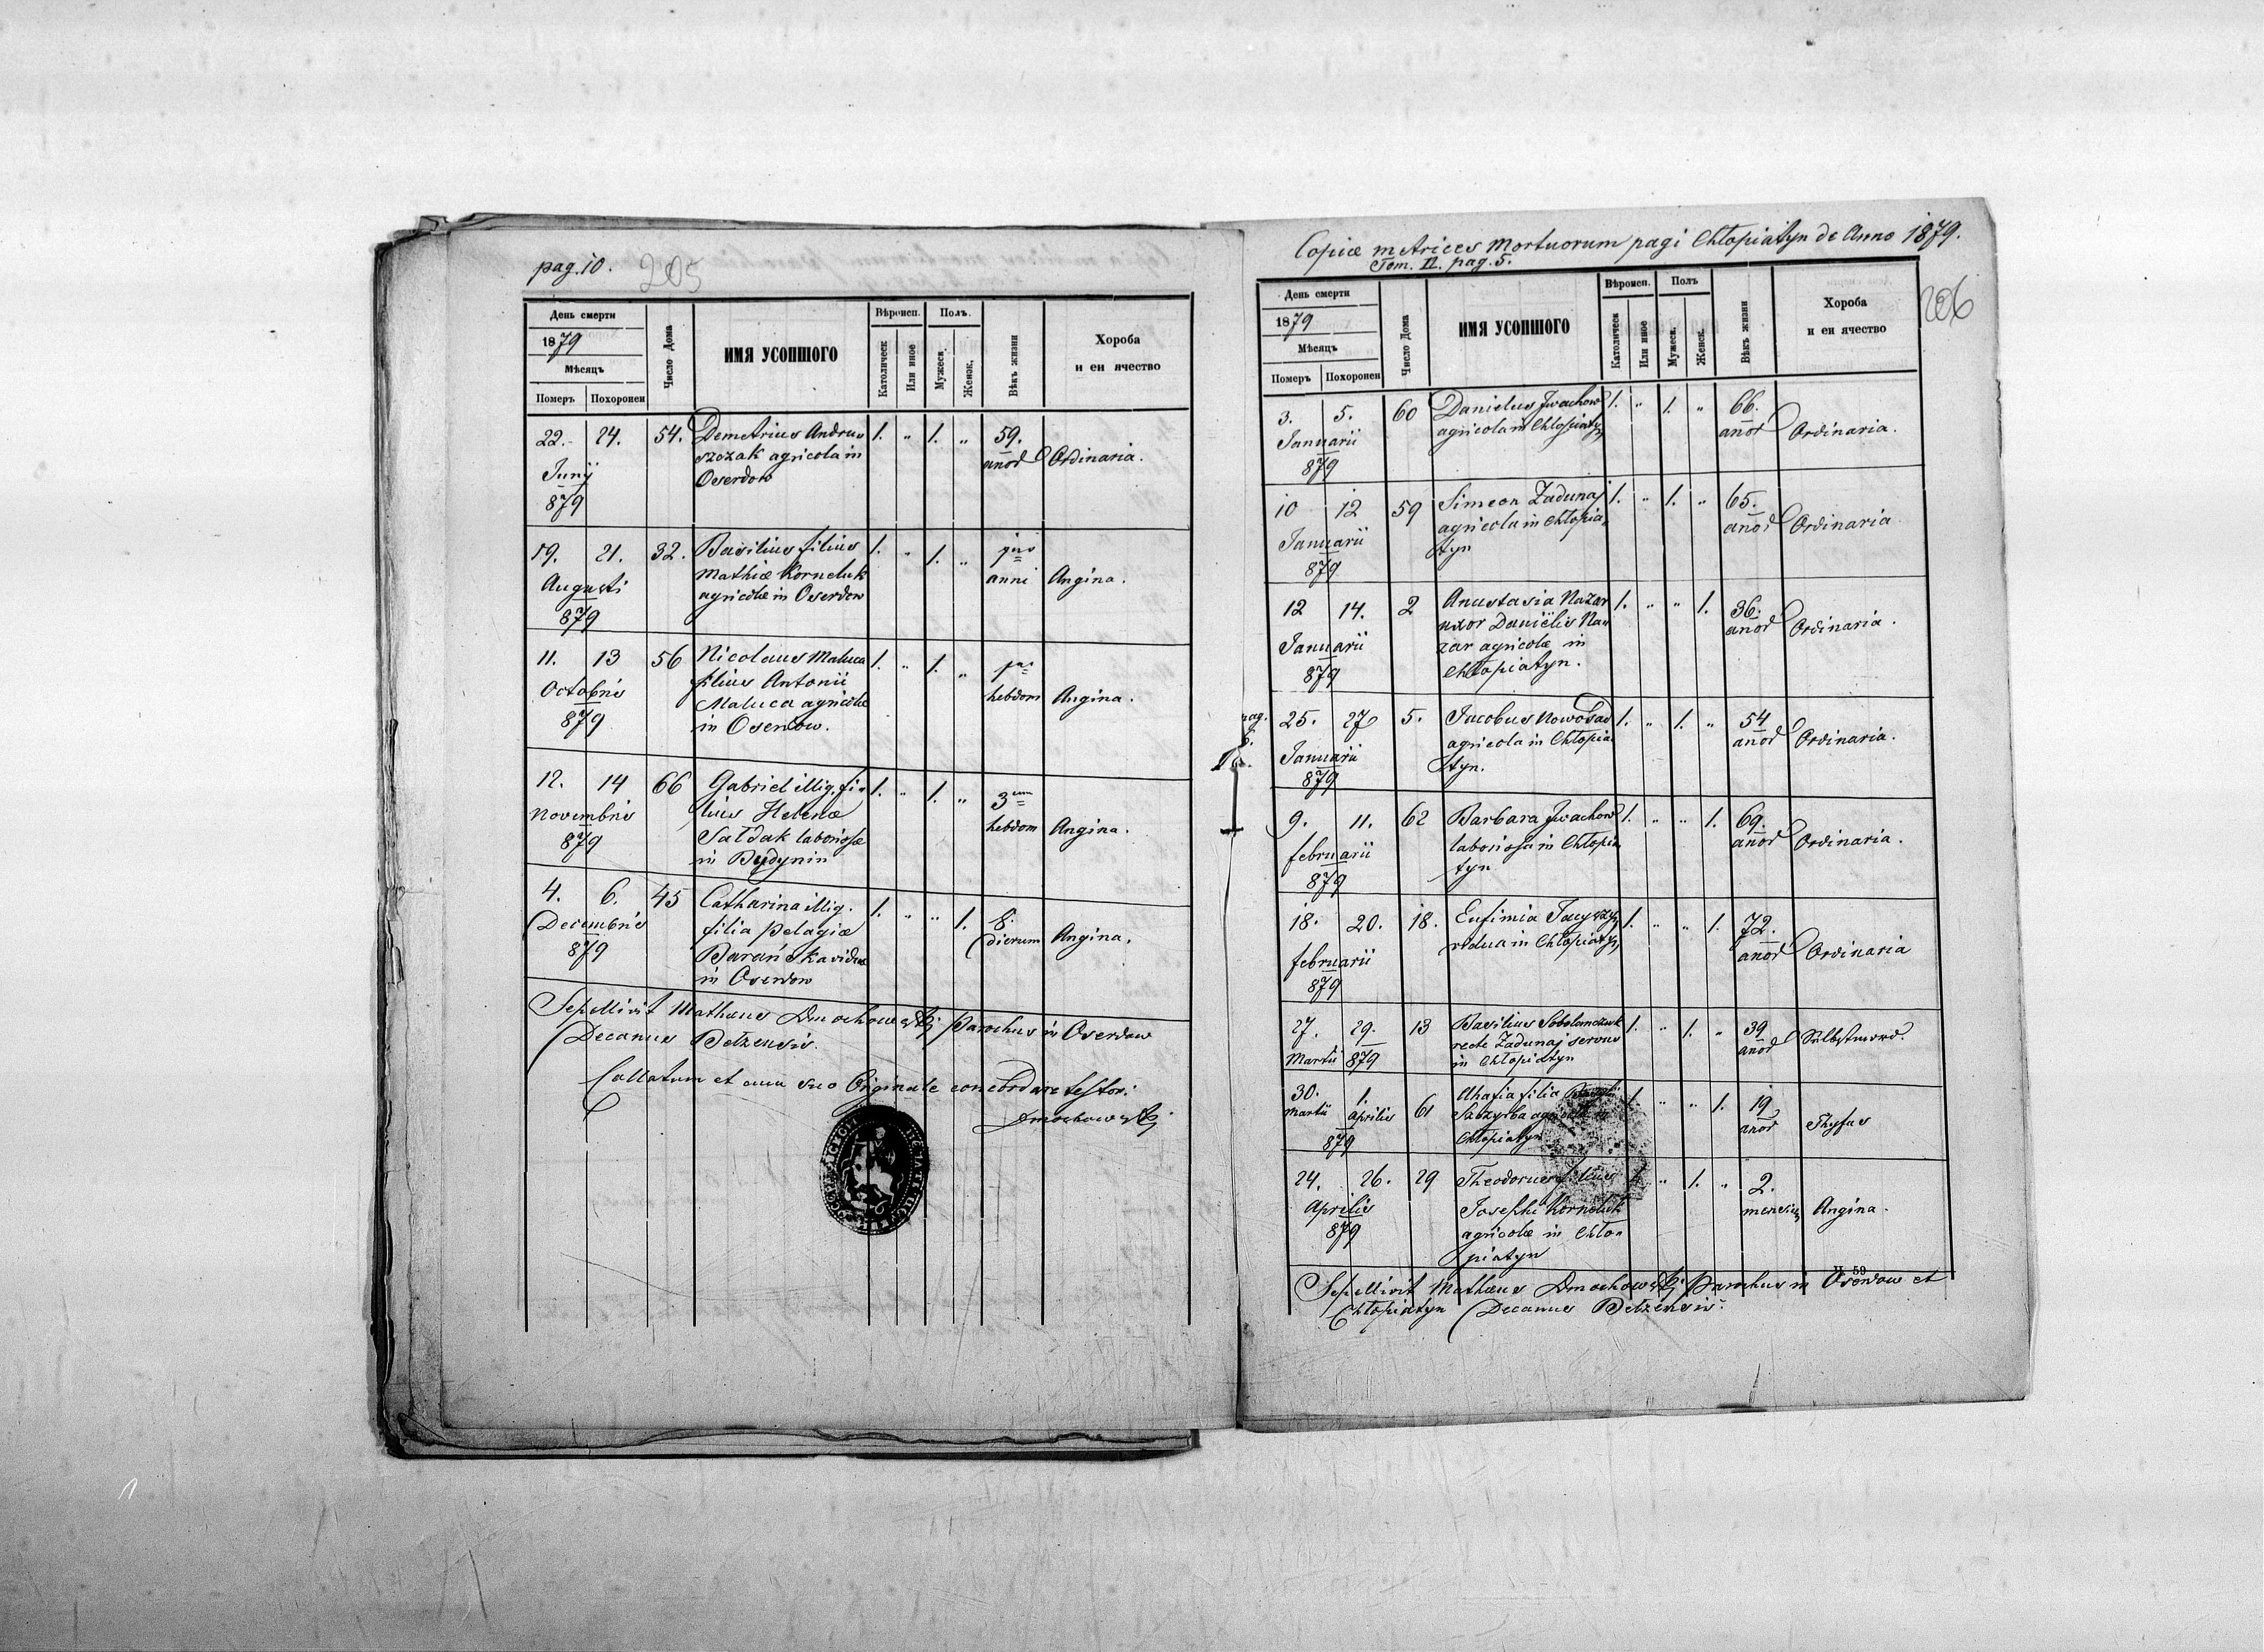 pag. 10.
205
День смерти
1879
Мѣсяцъ
Померъ
Похоронен
Число Дома
ИМЯ УСОПШОГО
Вѣроисп.
Католическ
Или иное
Полъ.
Мужеск.
Женск.
Вѣкъ жизни
Хороба
и еи ячество
22. 24. 54. Demetrius Andru„ 1. „ 1. „ 59.
Junij szczak agricola in anor Ordinaria.
879 Oserdow
19. 21. 32. Basilius filius 1. „ 1. „
Augusti Mathiæ Korneluk anni Angina.
879 agricolæ in Oserdow
11. 13 56 Nicolaus Maluca 1. „ 1. „
Octobris filius Antonii hebdom Angina.
879 Maluca agricolæ
in Oserdow.
12. 14 66 Gabriel illig. fi„ 1. „ 1. „ 3
Novembris lius Helenæ hebdom Angina.
879 Sałdak laboriosæ
in Budynin
4. 6. 45 Catharina illig. 1. „ „ 1. 8.
Decembris filia Pelagiæ dierum Angina.
879 Barańska viduæ
in Oserdow
Sepellivit Mathæus Dmochowski Parochus in Oserdow
Decanus Bełzensis.
Collatum et cum suo Originale concordare testor:
Dmochowski
Copiæ metrices Mortuorum pagi Chłopiatyn de Anno 1879.
Tom. II. pag. 5.
206
День смерти
1879
Мѣсяцъ
Померъ
Похоронен
Число Дома
ИМЯ УСОПШОГО
Вѣроисп.
Католическ
Или иное
Полъ
Мужеск.
Женск.
Вѣкъ жизни
Хороба
и еи ячество
3. 5. 60 Danielus Iwachow 1. „ 1. „ 66.
Januarii agricola in Chłopiatyn anor Ordinaria.
879
10 12 59 Simeon Zadunaj 1. „ 1. „ 65.
Januarii agricola in Chłopia„ anor Ordinaria
879 tyn
12 14. 2 Anastasia Nazar 1. „ „ 1. 36.
Januarii uxor Daniëlis Na„ anor Ordinaria.
879 zar agricolæ in
Chłopiatyn.
pag.
25. 27 5. Jacobus Nowosad 1. „ 1. „ 54
Januarii agricola in Chłopia„ anor Ordinaria.
879 tyn.
9. 11. 62 Barbara Iwachow 1. „ „ 1. 69.
februarii laboriosa in Chłopia„ anor Ordinaria.
879 tyn
18. 20. 18. Eufimia 1. „ „ 1. 72.
februarii vidua in Chłopiatyn anor Ordinaria
879
27. 29. 13 Basilius Sobolanczuk 1. „ 1. „ 39
Martii 879 recte Zadunaj servus anor Selbstmord.
in Chłopiatyn
30. 1. 61 Ahafia filia 1. „ „ 1. 19
Martii Aprilis agricolæ in anor Thyfus
879 Chłopiatyn
24. 26. 29 Theodorus filius 1. „ 1. „ 2.
Aprilis Josephi Korneluk mensium Angina.
879 agricolæ in Chło„
piatyn
59
Sepellivit Mathæus Dmochowski Parochus in Oserdow et
Chłopiatyn Decanus Bełzensis.